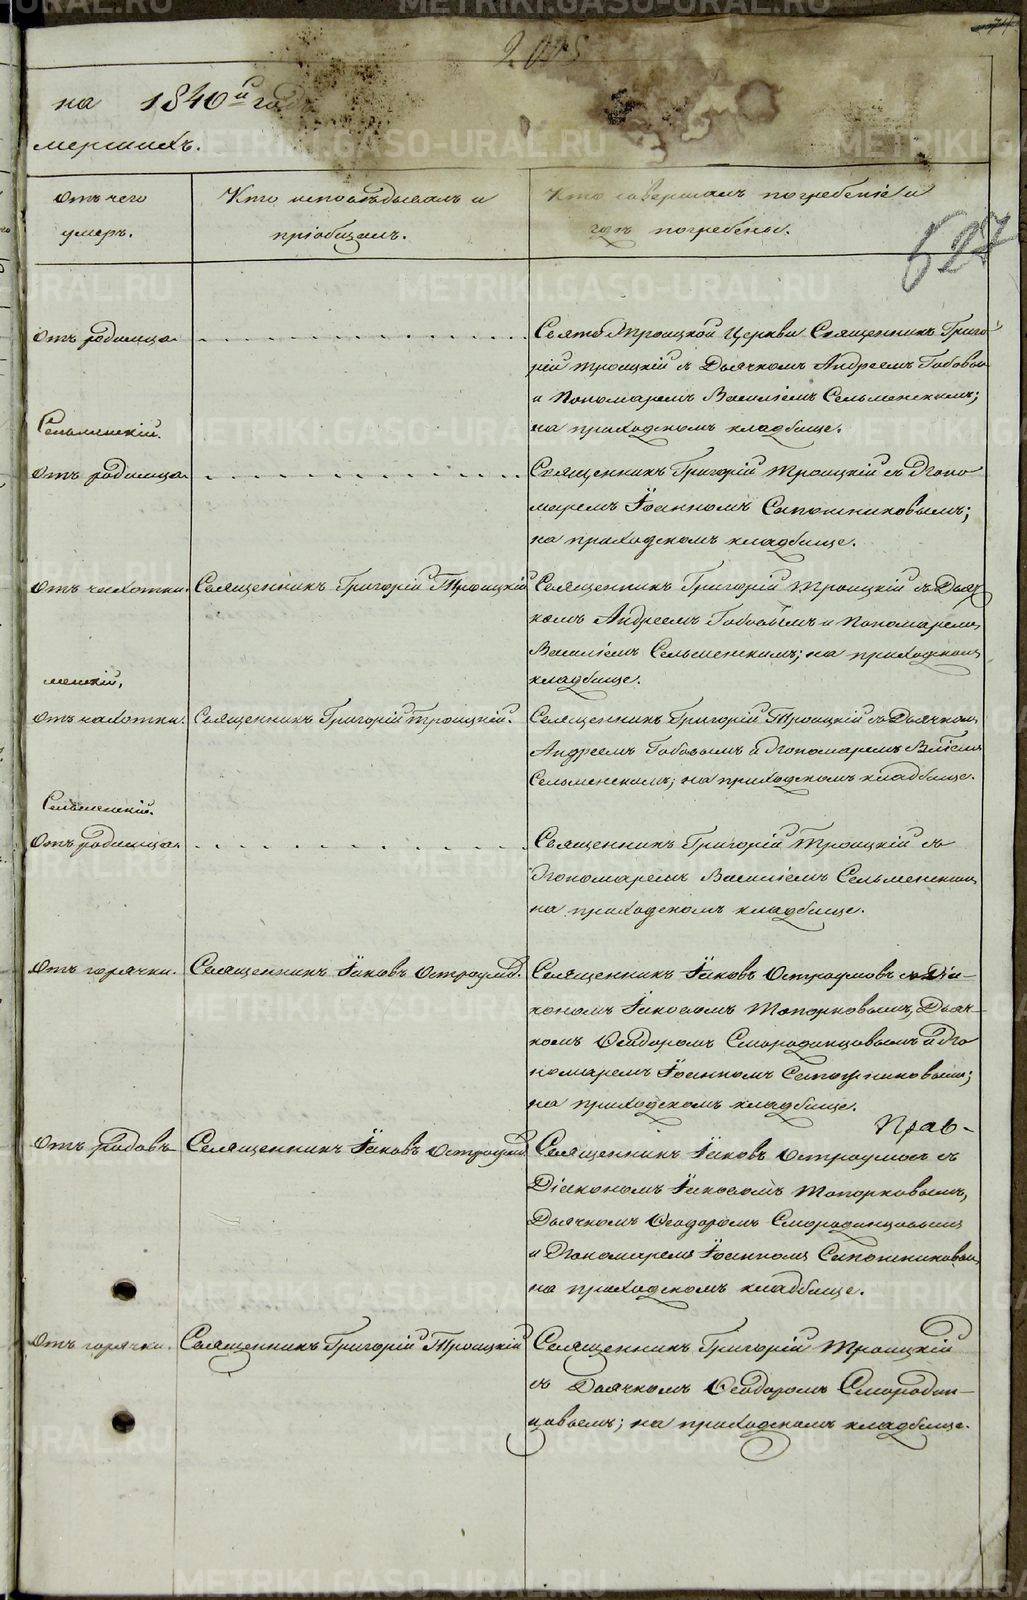 на 1840й годъ
мершихъ.
527
Отъ чего
умеръ.
Кто исповѣдывалъ и
пріобщалъ.
Кто совершалъ погребеніе и
гдѣ погребены.
Отъ родимца
Свято Троицкой Церкви Священникъ Григо
рій Троицкій съ Дьячкомъ Андреемъ Бабовым
и Пономаремъ Василіемъ Сельменскимъ;
на приходскомъ кладбище.
Сельменскій.
Отъ родимца
Священникъ Григорій Троицкій съ Поно
маремъ Іоанномъ Сапожниковымъ;
на приходскомъ кладбище.
Отъ чахотки.
Священникъ Григорій Троицкій
Священникъ Григорій Троицкій съ Дьяч
комъ Андреемъ и Пономаремъ
Василіемъ Сельменскимъ; на приходскомъ
кладбище.
менскій.
Отъ чахотки.
Священникъ Григорій Троицкій.
Священникъ Григорій Троицкій съ Дьячкомъ
Андреемъ и Пономаремъ
Сельменскимъ; на приходскомъ кладбище.
Сельменскій.
Отъ родимца.
Священникъ Григорій Троицкій съ
Пономаремъ Василіемъ Сельменскимъ
на приходскомъ кладбище.
Отъ горячки.
Священникъ Іаковъ Остроумов.
Священникъ Іаковъ Остроумовъ съ Діа-
кономъ Іаковомъ Топорковымъ, Дьяч-
комъ Ѳеодоромъ Смородинцовымъ и По
номаремъ Іоанномъ Сапожниковымъ;
на приходскомъ кладбище.
Прав-
Отъ родовъ
Священникъ Іаковъ Остроумов
Священникъ Іаковъ Остроумовъ съ
Діакономъ Іаковомъ Топорковымъ,
Дьячкомъ Ѳеодоромъ Смородинцовымъ
и Пономаремъ Іоанномъ Сапожниковым
на приходскомъ кладбище.
Отъ горячки.
Священникъ Григорій Троицкій
Священникъ Григорій Троицкій
съ Дьячкомъ Ѳеодоромъ Смородин-
цовымъ; на приходскомъ кладбище.
METRIKI.GASO-URAL.RU